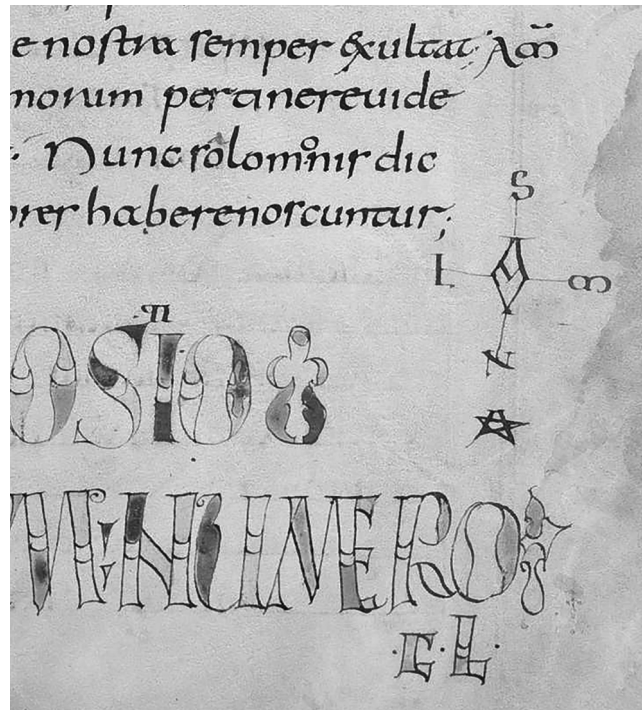 e nostra semper exultat; Am̄
norum pertinere uide
. Nunc solomonis dic
ores habere noscuntur;
S
L A M
N
n
OSTIO
NUMERO
.CL.